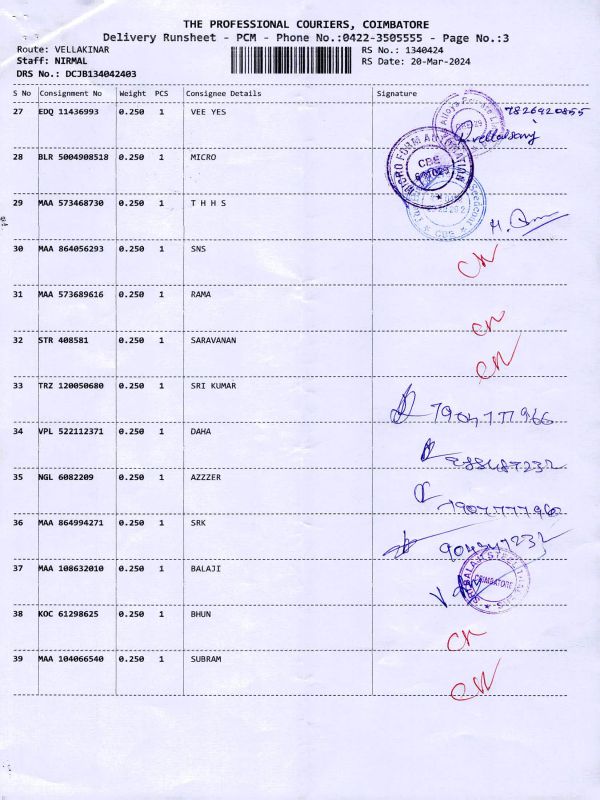 THE PROFESSIONAL COURIERS, COIMBATORE
Delivery Runsheet - PCM - Phone No.:0422-3505555 - Page No.:3
Route: VELLAKINAR RS No.: 1340424
Staff: NIRMAL RS Date: 20-Mar-2024
DRS No.: DCJB134042403
S No Consignment No Weight PCS Consignee Details Signature
27 EDQ 11436993 0.250 1 VEE YES
28 BLR 5004908518 0.250 1 MICRO
MICRO FORM AUTOMATION
CBE
29 MAA 573468730 0.250 1 T H H S
30 MAA 864056293 0.250 1 SNS
31 MAA 573689616 0.250 1 RAMA
32 STR 408581 0.250 1 SARAVANAN
33 TRZ 120050680 0.250 1 SRI KUMAR
34 VPL 522112371 0.250 1 DAHA
35 NGL 6082209 0.250 1 AZZZER
36 MAA 864994271 0.250 1 SRK
37 MAA 108632010 0.250 1 BALAJI
COIMBATORE
38 KOC 61298625 0.250 1 BHUN
39 MAA 104066540 0.250 1 SUBRAM